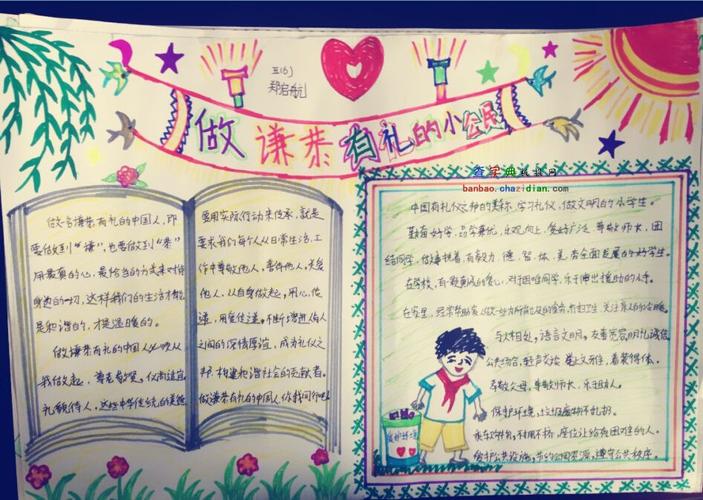 五(6)
郑启航
做谦恭有礼的小公民
查字典板报网
banbao.chazidian.com
做一名谦恭有礼的中国人，即
要做到"谦"，也要做到"恭"
用最真的心，最恰当的方式来对待
身边的一切，这样我们的生活才能
是和谐的，才是温暖的。
做谦恭有礼的中国人必须从
我做起，尊老敬贤，仪尚适宜
礼貌待人，这些中华传统的美德
要用实际行动来传承，就是
要求我们每个人从日常生活、工
作中尊敬他人，善待他人，关爱
他人，从自身做起，用心传
递，用爱传递，不断增进伟人
之间的深情厚谊，成为礼仪之
邦，构建和谐社会的贡献者。
做谦恭有礼的中国人，你我同行吧
中国有礼仪之邦的美称，学习礼仪，做文明的小学生。
勤奋好学，品学兼优，乐观向上，爱好广泛，尊敬师长，团
结同学，做事执着，有毅力，德、智、体、美、劳全面发展的好学生。
在学校，有一颗真诚的爱心，对于困难同学，乐于伸出援助的小手。
在家里，经常帮助家人做一些力所能及的家务
与人相处，语言文明，友善宽容明礼诚信
公共场合，轻声交谈，举止文雅，着装得体。
孝敬父母，尊敬师长，乐于助人。
保护环境，垃圾废物不乱扔。
乘车购物，利用不挤，座位让给有困难的人。
爱护公共设施，节约公用资源，遵守公共秩序。
爱护环境